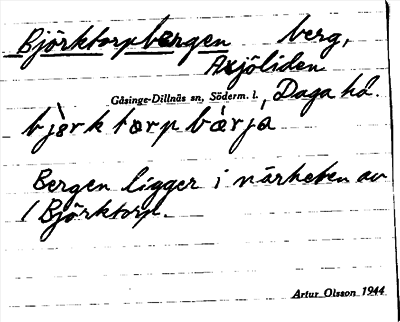 Björktorpbergen berg,
Axjöliden
Gåsinge-Dillnäs sn, Söderm. l., Daga hd.
bjørktorpbàrja
Bergen ligger i närheten av
/ Björktorp.
Artur Olsson 1944